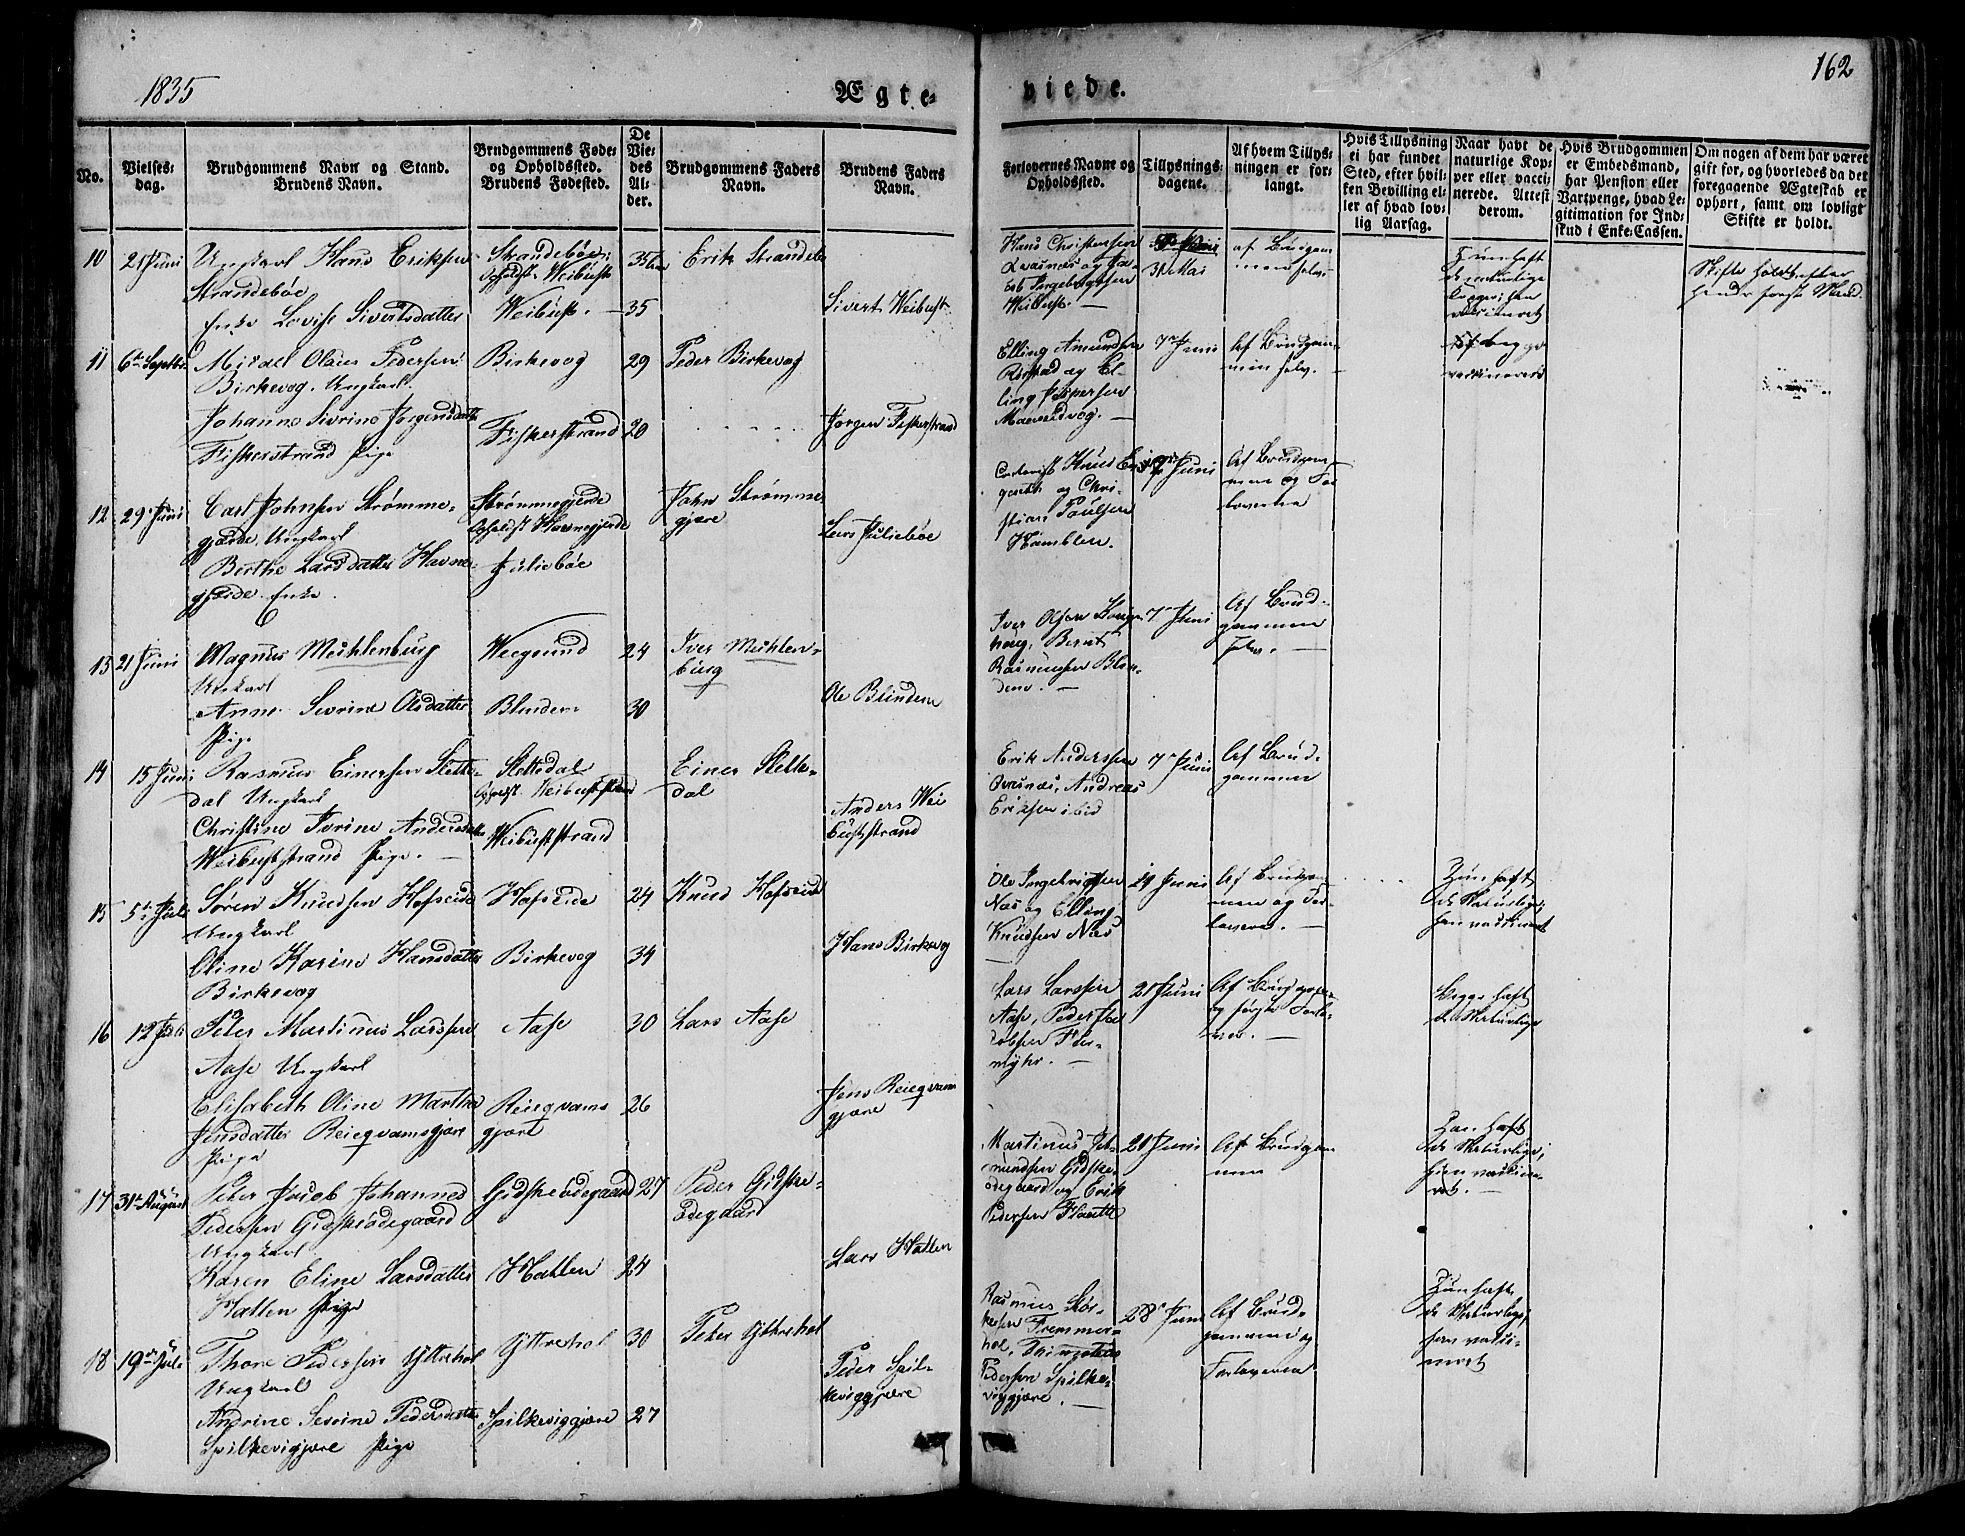 1835
Ægte-
viede.
162
No.
Vielses-
dag.
Brudgommens Navn og Stand.
Brudens Navn.
Brudgommens Føde-
og Opholdssted.
Brudens Fødested.
De
Vie-
des
Al-
der.
Brudgommens Faders
Navn.
Brudens Faders
Navn.
Forlovernes Navne og
Opholdssted.
Tillysnings-
dagene.
Af hvem Tillys-
ningen er for-
langt.
Hvis Tillysning
ei har fundet
Sted, efter hvil-
ken Bevilling el-
ler af hvad lov-
lig Aarsag.
Naar havt de
naturlige Kop-
per eller vacci-
nerede. Attest
derom.
Hvis Brudgommen
er Embedsmand,
har Pension eller
Vartpenge, hvad Le-
gitimation for Ind-
skud i Enke-Cassen.
Om nogen af dem har været
gift før, og hvorledes da det
foregaaende Ægteskab er
ophørt, samt om lovligt
Skifte er holdt.
10
21 Juni
Ungkarl Hans Eriksen
Strandebøe
Enke Lovise Sivertsdatter
Strandebøe,
Opholdst. Weibust
Weibust.
35
35
Erik Strandebøe
Sivert Weibust
Hans Christensen
Weibust.
31 Mai
af Brudgom-
men selv
11
6te Septbr
Mikael Olaus Pedersen
Birkevog. Ungkarl.
Johanne Sivrine Jørgensdatter
Fiskerstrand Pige
Birkevog
Fiskerstrand
29
20
Peder Birkevog
Jørgen Fiskerstrand
Elling Amundsen
Rørstad og El-
ling Jespersen
Maeseidvog.
7de Juni
Af Brudgom-
men selv.
af begge
vaccinerede
12
29 Juni
Carl Johnsen Strømme-
gjærde Ungkarl
Berthe Larsdatter Havne-
gjærde. Enke.
Strømmegjerde
Opholdst Havnegjerde
Juliebøe
John Strømme
gjære
Lars Juliebøe
og Chri-
stian Paulsen
Hamblen.
Juni
Af Brudgom-
men og For-
loverne
13
21 Juni
Magnus Muhlenburg
Ungkarl
Anne Sivrine Olsdatter
Pige
Weegsund
Blinden
24
30
Iver Muhlen-
burg
Ole Blinden
Iver Olsen
Bernt
Rasmussen Blin-
dene.
7de Juni
Af Brud-
gommen
selv.
14
15 Juni
Rasmus Einersen Slette-
dal Ungkarl
Christine Ivrine Andersdatter
Weibuststrand Pige.
Slettedal
Opholdst. Weibuststrand
Weibuststrand
Einer Slette-
dal
Anders Wei
buststrand
Erik Anderssen
Qvasnes, Andreas
Eriksen ibid
7de Juni
Af Brud-
gommen
15
5te Juli
Søren Knudsen Hofseide
Ungkarl
Oline Karine Hansdatter
Birkevog
Hofseide
Birkevog
24
34
Knud Hofseide
Hans Birkevog
Ole Ingebrigtsen
Næs og Elling
Knudsen Næs
14 Juni
Af Brudgom-
men og For-
loverne.
Hun haft
de Naturlige,
han vaccineret
16
12 Juli
Peter Martinus Larssen
Aase Ungkarl
Elisabeth Oline Martha
Jensdatter Reieqvamsgjære
Pige
Aase
Reieqvams
gjære
30
26
Lars Aase
Jens Reieqvam
gjære
Lars Larssen
Aase, Peder Ja-
cobsen Fla-
myhr.
21 Juni
Begge haft
de Naturlige
17
31te August
Peter Jacob Johannes
Pedersen Gidskeødegaard
Ungkarl
Karen Eline Larsdatter
Hatlen Pige
Gidskeødegaard
Hatlen
27
24
Peder Gidske-
ødegaard
Lars Hatlen
Martinus
Gidske-
ødegaard og Erik
Pedersen
21 Juni
Af Brudgom-
men
Han haft
de Naturlige,
hun vaccine-
ret.
18
19de Juli
Thore Pedersen Ytterhol
Ungkarl
Andrine Sevrine Pedersdatter
Spilkeviggjære Pige
Ytterhol
Spilkeviggjære
30
27
Peter Ytterhol
Peder Spil-
keviggjære
Rasmus
Fremmer-
hol,
Pedersen Spilke-
viggjære.
28de Juni
Af Brud-
gommen og
Forloverne
Hun haft
de Naturlige,
han vacci-
neret